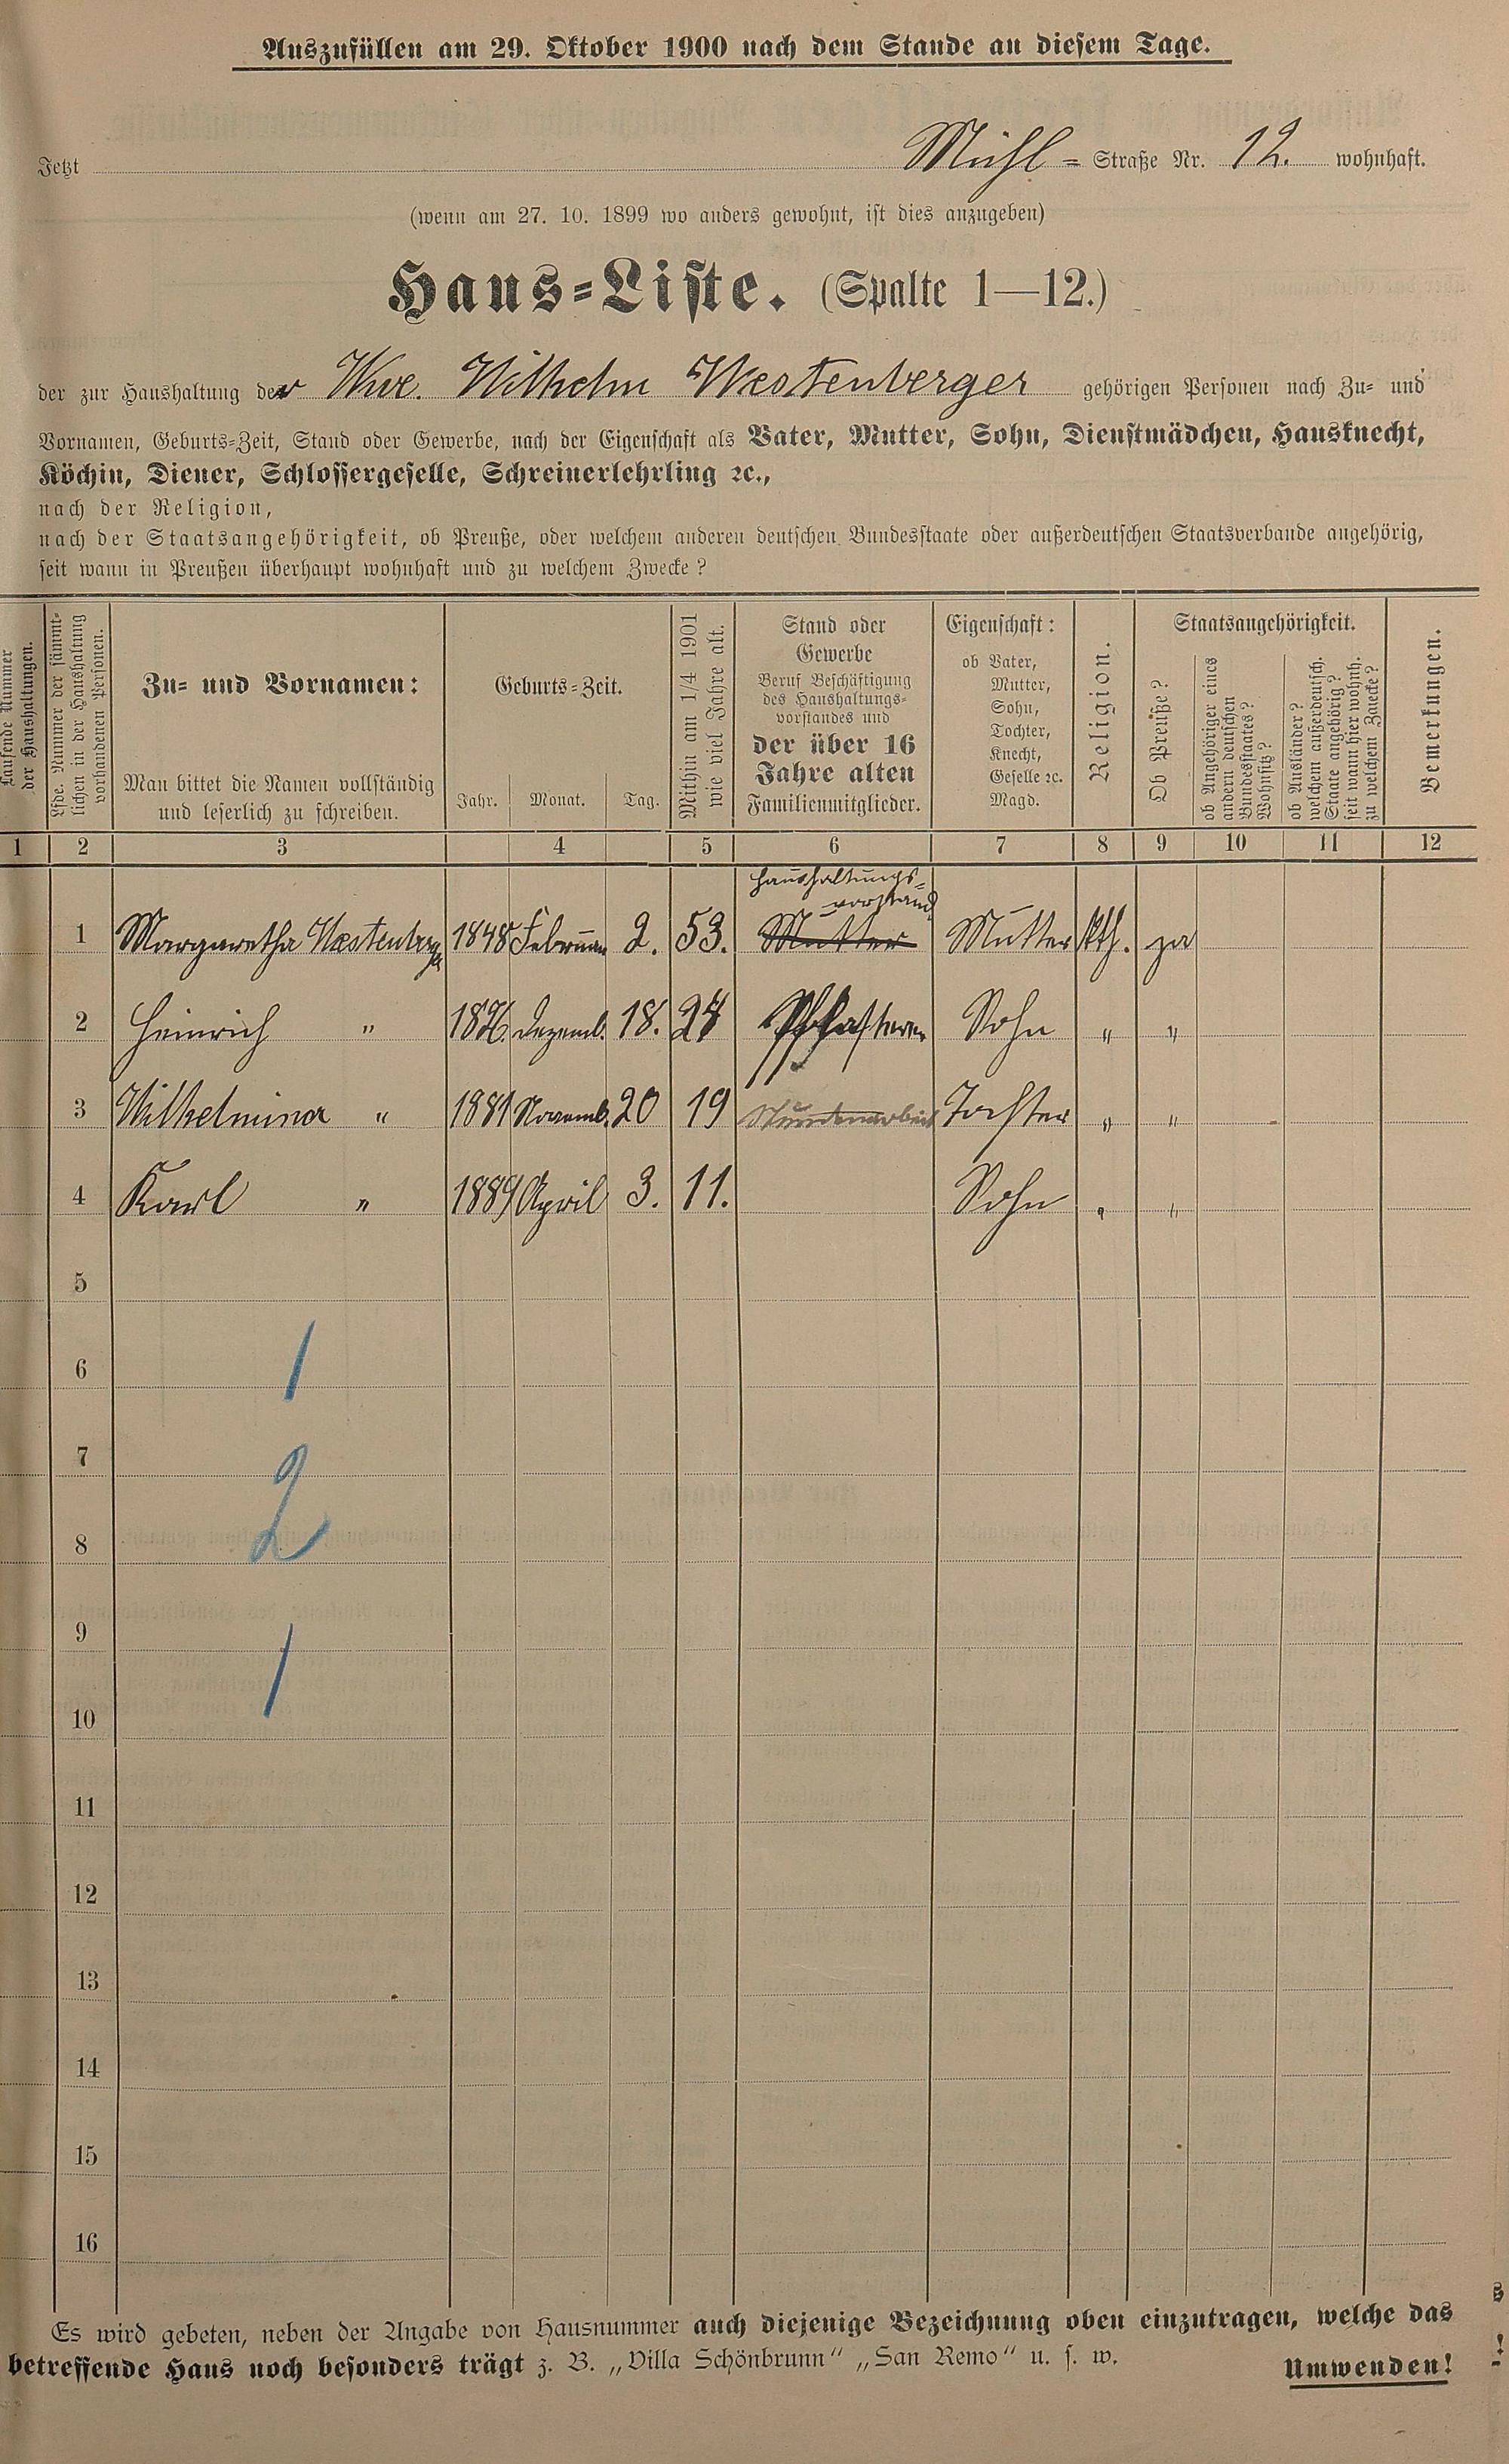 Auszufüllen am 29. Oktober 1900 nach dem Stande an diesem Tage.
Jetzt Mühl = Straße Nr. 12. wohnhaft.
(wenn am 27. 10. 1899 wo anders gewohnt, ist dies anzugeben)
Haus-Liste. (Spalte 1—12.)
der zur Haushaltung der Wwe. Wilhelm Westenberger gehörigen Personen nach Zu- und
Vornamen, Geburts-Zeit, Stand oder Gewerbe, nach der Eigenschaft als Vater, Mutter, Sohn, Dienstmädchen, Hausknecht,
Köchin, Diener, Schlossergeselle, Schreinerlehrling ꝛc.,
nach der Religion,
nach der Staatsangehörigkeit, ob Preuße, oder welchem anderen deutschen Bundesstaate oder außerdeutschen Staatsverbande angehörig,
seit wann in Preußen überhaupt wohnhaft und zu welchem Zwecke?
Laufende Nummer
der Haushaltungen.
Lfde. Nummer der sämmt-
lichen in der Haushaltung
vorhandenen Personen.
Zu- und Vornamen:
Man bittet die Namen vollständig
und leserlich zu schreiben.
Geburts-Zeit.
Jahr. Monat. Tag.
Mithin am 1/4 1901
wie viel Jahre alt.
Stand oder
Gewerbe
Beruf Beschäftigung
des Haushaltungs-
vorstandes und
der über 16
Jahre alten
Familienmitglieder.
Eigenschaft:
ob Vater,
Mutter,
Sohn,
Tochter,
Knecht,
Geselle ꝛc.
Magd.
Religion.
Staatsangehörigkeit.
Ob Preuße?
ob Angehöriger eines
andern deutschen
Bundesstaates?
Wohnsitz?
ob Ausländer?
welchem außerdeutsch.
Staate angehörig?
seit wann hier wohnh.
zu welchem Zwecke?
Bemerkungen.
1 2 3 4 5 6 7 8 9 10 11 12
Haushaltungs-
vorstand
1 Margaretha Westenberger 1848 Februar 2. 53. Mutter Mutter kth. ja
2 Heinrich " 1876. Dezemb. 18. 24 Sohn " "
3 Wilhelmina " 1881 Novemb. 20 19 Tochter " "
4 Karl " 1889 April 3. 11. Sohn " "
5
6
1
7
2
8
9
1
10
11
12
13
14
15
16
Es wird gebeten, neben der Angabe von Hausnummer auch diejenige Bezeichnung oben einzutragen, welche das
betreffende Haus noch besonders trägt z. B. „Villa Schönbrunn“ „San Remo“ u. s. w.
Umwenden!